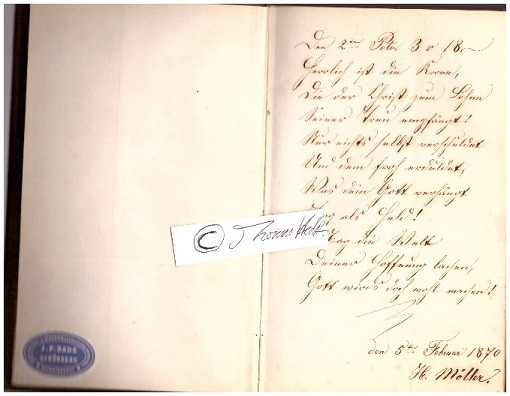 Den 2ten Petri 3 v 18.
Herrlich ist die Krone,
Die der Christ zum Lohne
Seiner Treu empfängt!
Nur nichts selbst verschuldet
Und dem froh erduldet,
Was dein Gott verhängt
als Held!
Mag die Welt
Deiner Hoffnung lachen,
Gott wirds doch wohl machen!
den 5ten Februar 1870
H. Möller.
© Thomas
J. P. BADE